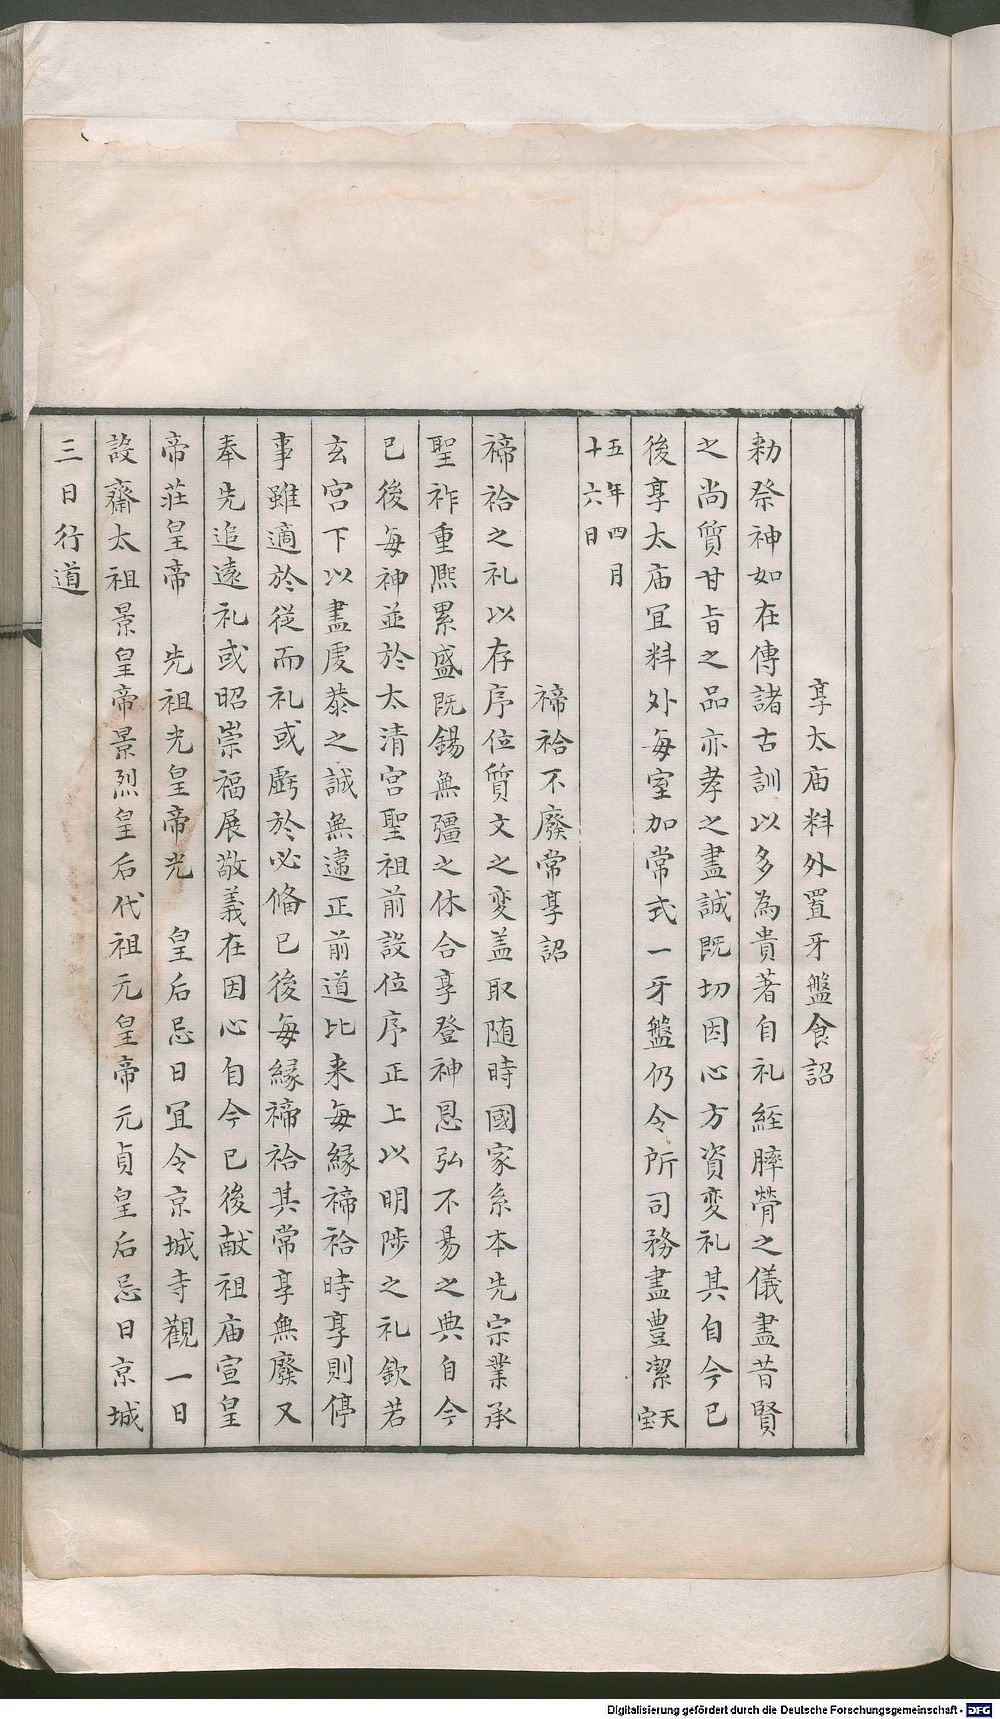 享太庙料外置牙盤食詔
勑祭神如在傳諸古訓以多為貴著自礼經膟膋之儀盡昔賢
之尚質甘旨之品亦孝之盡誠既切因心方資変礼其自今已
後享太庙冝料外每室加常式一牙盤仍令所司務盡豊潔天宝
五年四月十六日
禘祫不廢常享詔
禘祫之礼以存序位質文之変盖取随時國家系本先宗業承
聖祚重熈累盛既錫無彊之休合享登神恩弘不易之典自今
已後每神並於太清宮聖祖前設位序正上以明陟之礼欽若
玄宮下以盡虔恭之誠無違正前道比来每縁禘祫時享則停
事雖適於従而礼或虧於必俻已後每縁禘祫其常享無廢又
奉先追遠礼或昭崇福展敬義在因心自今已後献祖庙宣皇
帝莊皇帝　先祖光皇帝光　皇后忌日冝令京城寺觀一日
設齋太祖景皇帝景烈皇后代祖元皇帝元貞皇后忌日京城
三日行道
Digitalisierung gefördert durch die Deutsche Forschungsgemeinschaft - DFG